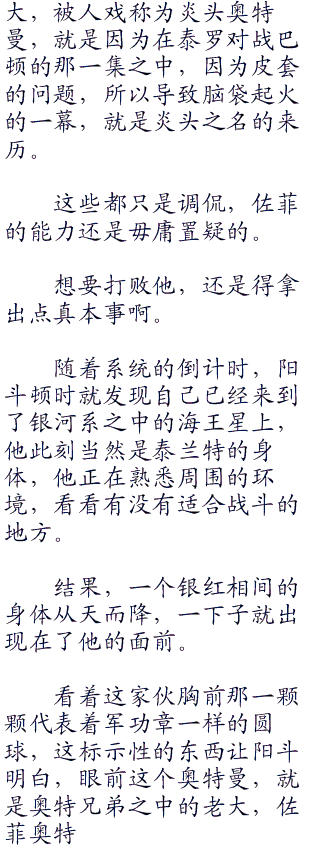 大，被人戏称为炎头奥特
曼，就是因为在泰罗对战巴
顿的那一集之中，因为皮套
的问题，所以导致脑袋起火
的一幕，就是炎头之名的来
历。
这些都只是调侃，佐菲
的能力还是毋庸置疑的。
想要打败他，还是得拿
出点真本事啊。
随着系统的倒计时，阳
斗顿时就发现自己已经来到
了银河系之中的海王星上，
他此刻当然是泰兰特的身
体，他正在熟悉周围的环
境，看看有没有适合战斗的
地方。
结果，一个银红相间的
身体从天而降，一下子就出
现在了他的面前。
看着这家伙胸前那一颗
颗代表着军功章一样的圆
球，这标示性的东西让阳斗
明白，眼前这个奥特曼，就
是奥特兄弟之中的老大，佐
菲奥特